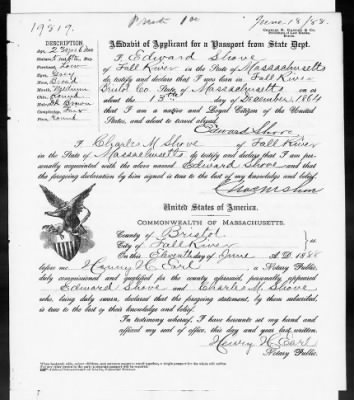 19819.
June 18/88.
DESCRIPTION.
Affidavit of Applicant for a Passport from State Dept.
I, Edward Shove
of Fall River in the State of Massachusetts
do testify and declare that I was born in Fall River
Bristol Co. State of Massachusetts on or
about the 13th day of December, 1864
that I am a native and Loyal Citizen of the United
States, and about to travel abroad.
Edward Shove.
I Charles M. Shove of Fall River
in the State of Massachusetts do testify and declare that I am per-
sonally acquainted with the above named Edward Shove and that
the foregoing declaration by him signed is true to the best of my knowledge and belief.
Chas M Shove
United States of America.
COMMONWEALTH OF MASSACHUSETTS.
County of Bristol
City of Fall River } ss
On this Eleventh day of June A. D. 1888
before me Henry H. Earl a Notary Public,
duly commissioned and qualified for the county aforesaid, personally appeared
Edward Shove and Charles M. Shove
who, being duly sworn, declared that the foregoing statement, by them subscribed,
is true to the best of their knowledge and belief.
In testimony whereof, I have hereunto set my hand and
affixed my seal of office, this day and year last written.
Henry H. Earl
Notary Public.